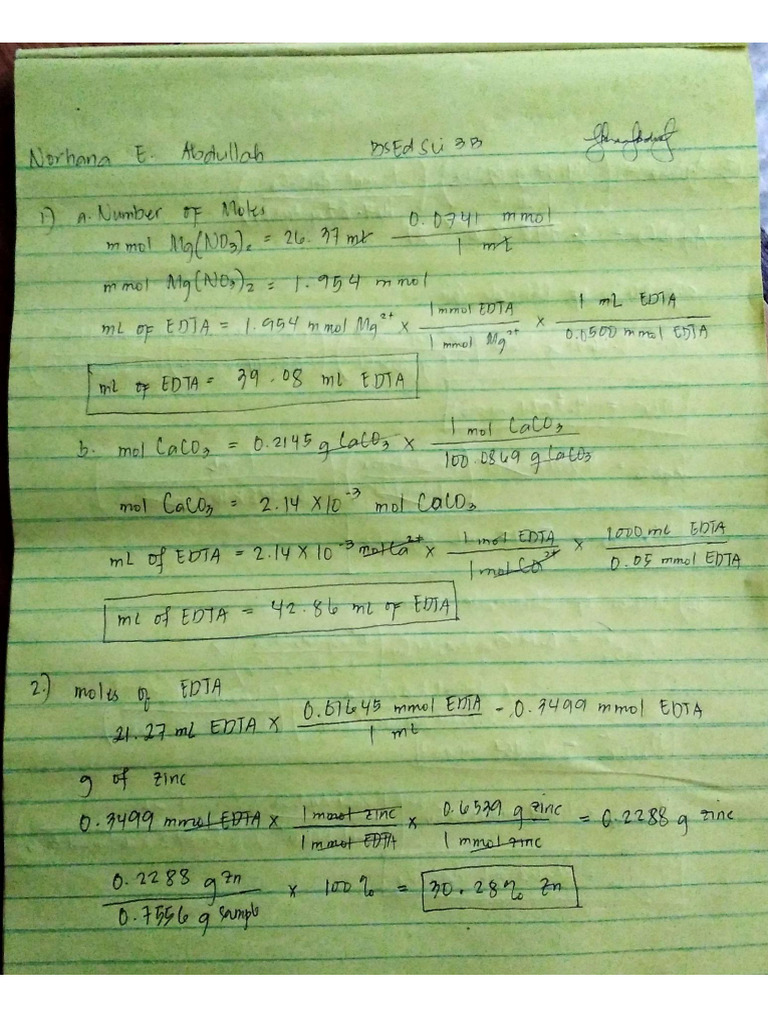 Norhana E. Abdullah BSEdSci 3B
1) a. Number of Moles
mmol Mg(NO3)2 = 26.37 mL 0.0741 mmol / 1 mL
mmol Mg(NO3)2 = 1.954 mmol
mL of EDTA = 1.954 mmol Mg2+ x 1 mmol EDTA / 1 mmol Mg2+ x 1 mL EDTA / 0.0500 mmol EDTA
mL of EDTA = 39.08 mL EDTA
b. mol CaCO3 = 0.2145 g CaCO3 x 1 mol CaCO3 / 100.0869 g CaCO3
mol CaCO3 = 2.14 x 10-3 mol CaCO3
mL of EDTA = 2.14 x 10-3 mol Ca2+ x 1 mol EDTA / 1 mol Ca2+ x 1000 mL EDTA / 0.05 mmol EDTA
mL of EDTA = 42.86 mL of EDTA
2.) moles of EDTA
21.27 mL EDTA x 0.01645 mmol EDTA / 1 mL - 0.3499 mmol EDTA
g of zinc
0.3499 mmol EDTA x 1 mmol zinc / 1 mmol EDTA x 0.6539 g zinc / 1 mmol zinc = 0.2288 g zinc
0.2288 g Zn / 0.7556 g sample x 100% = 30.28% Zn